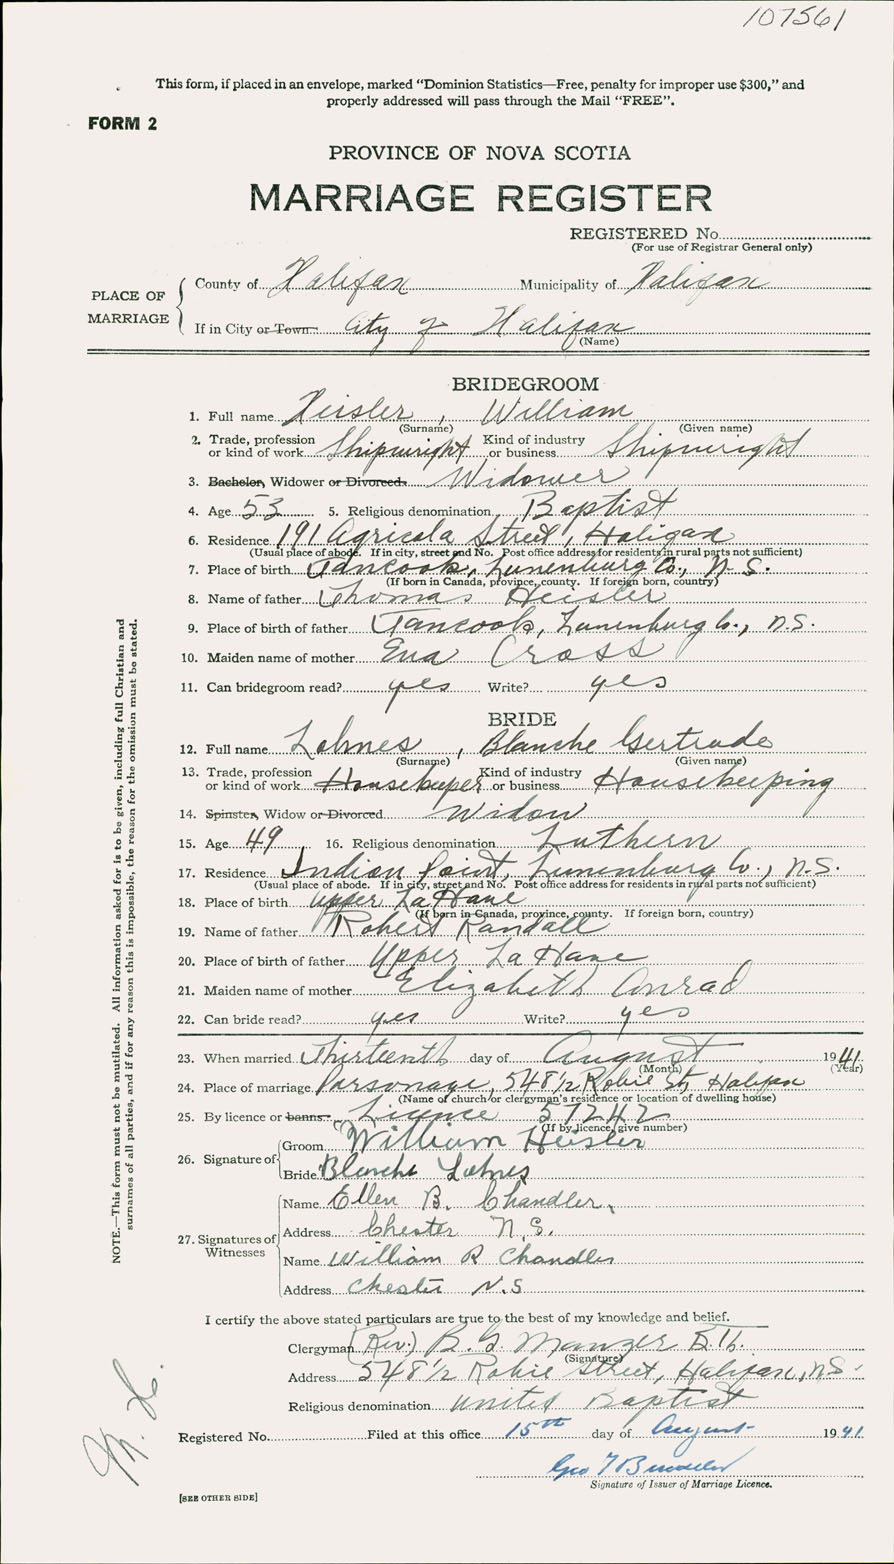 107561
This form, if placed in an envelope, marked “Dominion Statistics—Free, penalty for improper use $300,” and
properly addressed will pass through the Mail “FREE”.
FORM 2
PROVINCE OF NOVA SCOTIA
MARRIAGE REGISTER
REGISTERED No.
(For use of Registrar General only)
PLACE OF MARRIAGE
County of Halifax Municipality of Halifax
If in City or Town City of Halifax
(Name)
BRIDEGROOM
1. Full name Heisler, William
(Surname) (Given name)
2. Trade, profession or kind of work Shipwright Kind of industry or business Shipwright
3. Bachelor, Widower or Divorced. Widower
4. Age 53 5. Religious denomination Baptist
6. Residence 191 Agricola Street, Halifax
(Usual place of abode. If in city, street and No. Post office address for residents in rural parts not sufficient)
7. Place of birth Tancook, Lunenburg Co., N.S.
(If born in Canada, province, county. If foreign born, country)
8. Name of father Thomas Heisler
9. Place of birth of father Tancook, Lunenburg Co., N.S.
10. Maiden name of mother Eva Cross
11. Can bridegroom read? yes Write? yes
BRIDE
12. Full name Lohnes, Blanche Gertrude
(Surname) (Given name)
13. Trade, profession or kind of work Housekeeper Kind of industry or business Housekeeping
14. Spinster, Widow or Divorced Widow
15. Age 49 16. Religious denomination Luthern
17. Residence Indian Point, Lunenburg Co., N.S.
(Usual place of abode. If in city, street and No. Post office address for residents in rural parts not sufficient)
18. Place of birth Upper La Have
(If born in Canada, province, county. If foreign born, country)
19. Name of father Robert Randall
20. Place of birth of father Upper La Have
21. Maiden name of mother Elizabeth Conrad
22. Can bride read? yes Write? yes
23. When married Thirteenth day of August 1941
(Month) (Year)
24. Place of marriage Parsonage, 548 1/2 Robie St, Halifax
(Name of church or clergyman's residence or location of dwelling house)
25. By licence or banns Licence 57242
(If by licence, give number)
26. Signature of
Groom William Heisler
Bride Blanche Lohnes
27. Signatures of Witnesses
Name Ellen B. Chandler.
Address Chester N.S.
Name William R Chandler
Address Chester N.S
I certify the above stated particulars are true to the best of my knowledge and belief.
Clergyman (Rev.) B. G. Manzer B.Th.
(Signature)
Address 548 1/2 Robie Street, Halifax, N.S.
Religious denomination United Baptist
Registered No. Filed at this office 15th day of August 1941
Geo
Signature of Issuer of Marriage Licence.
[SEE OTHER SIDE]
NOTE.—This form must not be mutilated. All information asked for is to be given, including full Christian and
surnames of all parties, and if for any reason this is impossible, the reason for the omission must be stated.